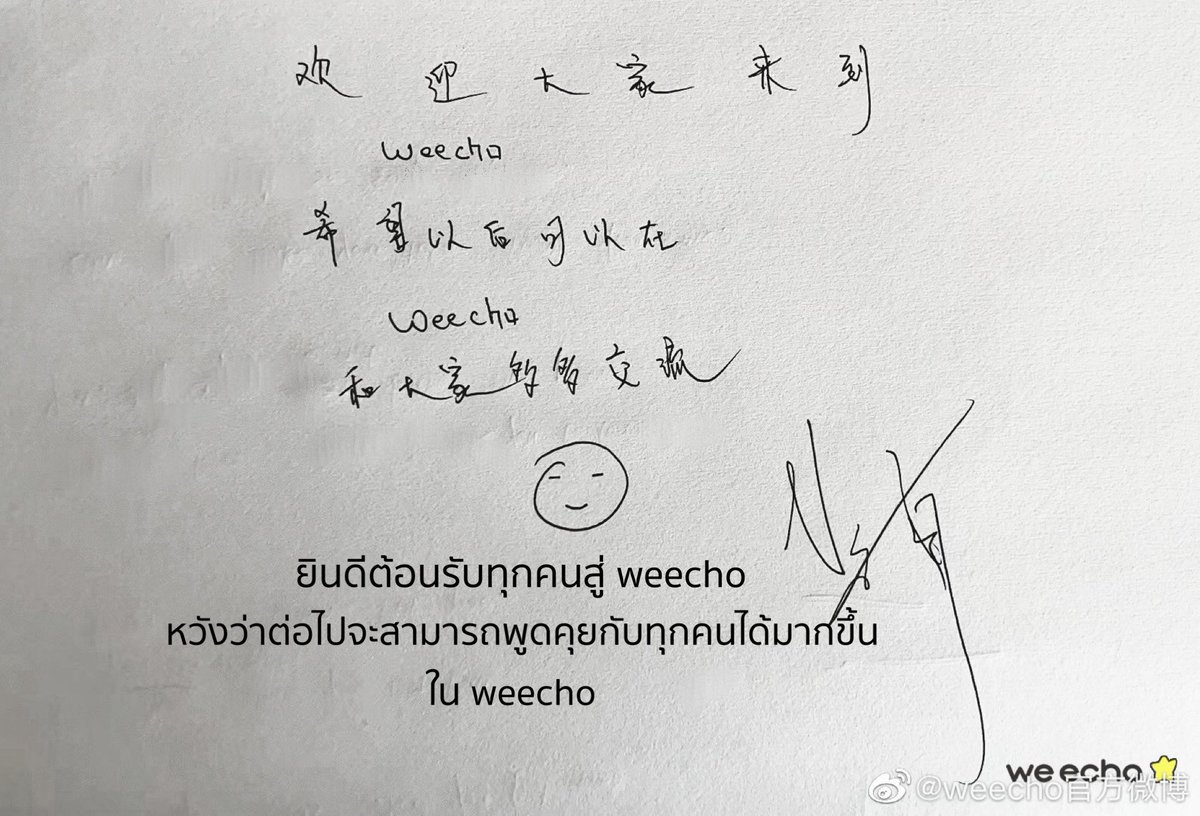 欢迎大家来到
weecho
希望以后可以在
weecho
和大家多多交流
ยินดีต้อนรับทุกคนสู่ weecho
หวังว่าต่อไปจะสามารถพูดคุยกับทุกคนได้มากขึ้น
ใน weecho
weecho
@weecho官方微博